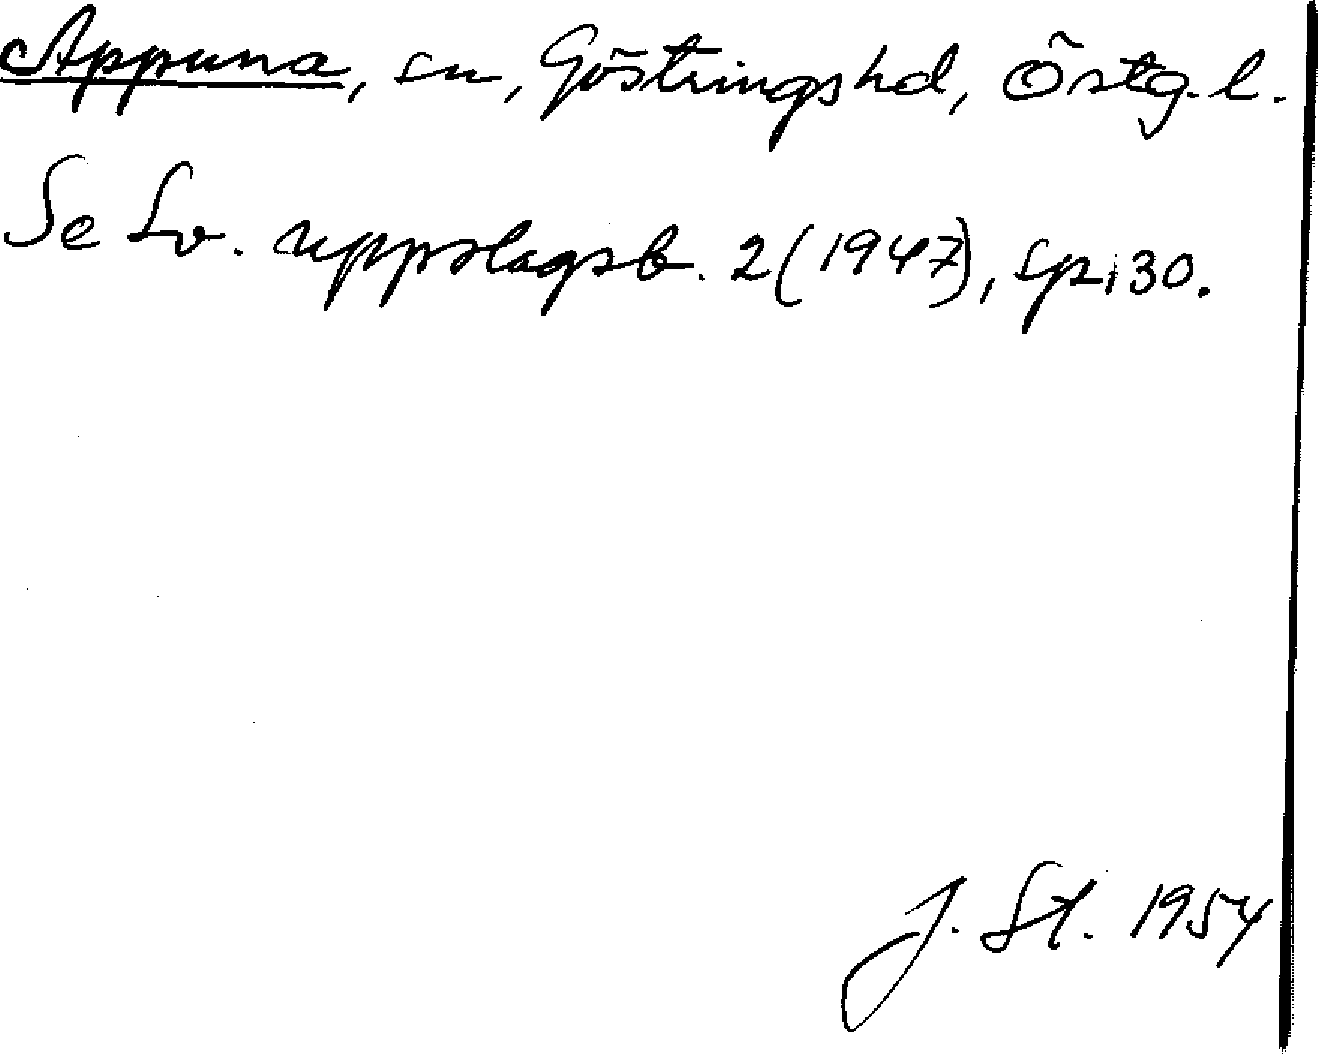 Appuna, sn, Göstringshd, Östg. l.
Se Sv. uppslagsb. 2 (1947), sp. 130.
J. St. 1954